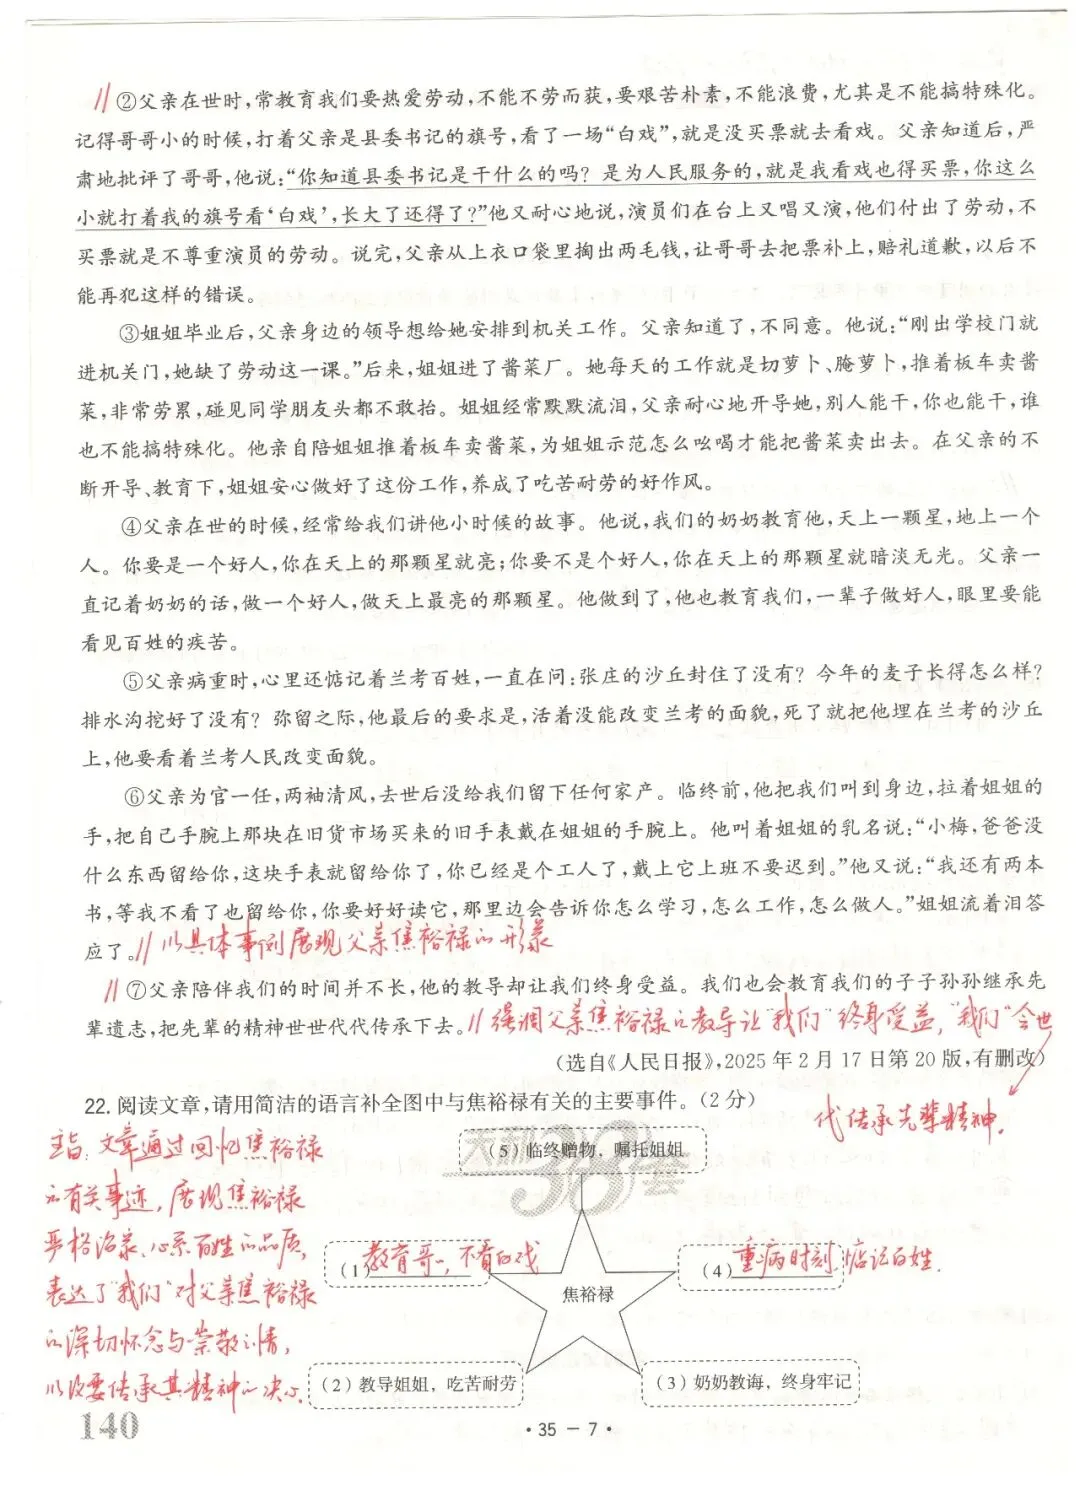 ②父亲在世时,常教育我们要热爱劳动,不能不劳而获,要艰苦朴素,不能浪费,尤其是不能搞特殊化。
记得哥哥小的时候,打着父亲是县委书记的旗号,看了一场“白戏”,就是没买票就去看戏。父亲知道后,严
肃地批评了哥哥,他说:“你知道县委书记是干什么的吗?是为人民服务的,就是我看戏也得买票,你这么
小就打着我的旗号看‘白戏’,长大了还得了?”他又耐心地说,演员们在台上又唱又演,他们付出了劳动,不
买票就是不尊重演员的劳动。说完,父亲从上衣口袋里掏出两毛钱,让哥哥去把票补上,赔礼道歉,以后不
能再犯这样的错误。
③姐姐毕业后,父亲身边的领导想给她安排到机关工作。父亲知道了,不同意。他说:“刚出学校门就
进机关门,她缺了劳动这一课。”后来,姐姐进了酱菜厂。她每天的工作就是切萝卜、腌萝卜,推着板车卖酱
菜,非常劳累,碰见同学朋友头都不敢抬。姐姐经常默默流泪,父亲耐心地开导她,别人能干,你也能干,谁
也不能搞特殊化。他亲自陪姐姐推着板车卖酱菜,为姐姐示范怎么吆喝才能把酱菜卖出去。在父亲的不
断开导、教育下,姐姐安心做好了这份工作,养成了吃苦耐劳的好作风。
④父亲在世的时候,经常给我们讲他小时候的故事。他说,我们的奶奶教育他,天上一颗星,地上一个
人。你要是一个好人,你在天上的那颗星就亮;你要不是个好人,你在天上的那颗星就暗淡无光。父亲一
直记着奶奶的话,做一个好人,做天上最亮的那颗星。他做到了,他也教育我们,一辈子做好人,眼里要能
看见百姓的疾苦。
⑤父亲病重时,心里还惦记着兰考百姓,一直在问:张庄的沙丘封住了没有?今年的麦子长得怎么样?
排水沟挖好了没有?弥留之际,他最后的要求是,活着没能改变兰考的面貌,死了就把他埋在兰考的沙丘
上,他要看着兰考人民改变面貌。
⑥父亲为官一任,两袖清风,去世后没给我们留下任何家产。临终前,他把我们叫到身边,拉着姐姐的
手,把自己手腕上那块在旧货市场买来的旧手表戴在姐姐的手腕上。他叫着姐姐的乳名说:“小梅,爸爸没
什么东西留给你,这块手表就留给你了,你已经是个工人了,戴上它上班不要迟到。”他又说:“我还有两本
书,等我不看了也留给你,你要好好读它,那里边会告诉你怎么学习,怎么工作,怎么做人。”姐姐流着泪答
应了。//以具体事例展现父亲焦裕禄的形象
//⑦父亲陪伴我们的时间并不长,他的教导却让我们终身受益。我们也会教育我们的子子孙孙继承先
辈遗志,把先辈的精神世世代代传承下去。//强调父亲焦裕禄的教导让“我们”终身受益,“我们”会世
(选自《人民日报》,2025年2月17日第20版,有删改)
代传承先辈精神。
22. 阅读文章,请用简洁的语言补全图中与焦裕禄有关的主要事件。(2分)
主旨:文章通过回忆焦裕禄
的有关事迹,展现焦裕禄
严格治家、心系百姓的品质,
表达了“我们”对父亲焦裕禄
的深切怀念与崇敬之情,
以及要传承其精神的决心。
天利38套
(5)临终赠物,嘱托姐姐
(1)教育哥哥,不看白戏
(4)重病时刻,惦记百姓.
焦裕禄
(2)教导姐姐,吃苦耐劳
(3)奶奶教诲,终身牢记
140
·35－7·